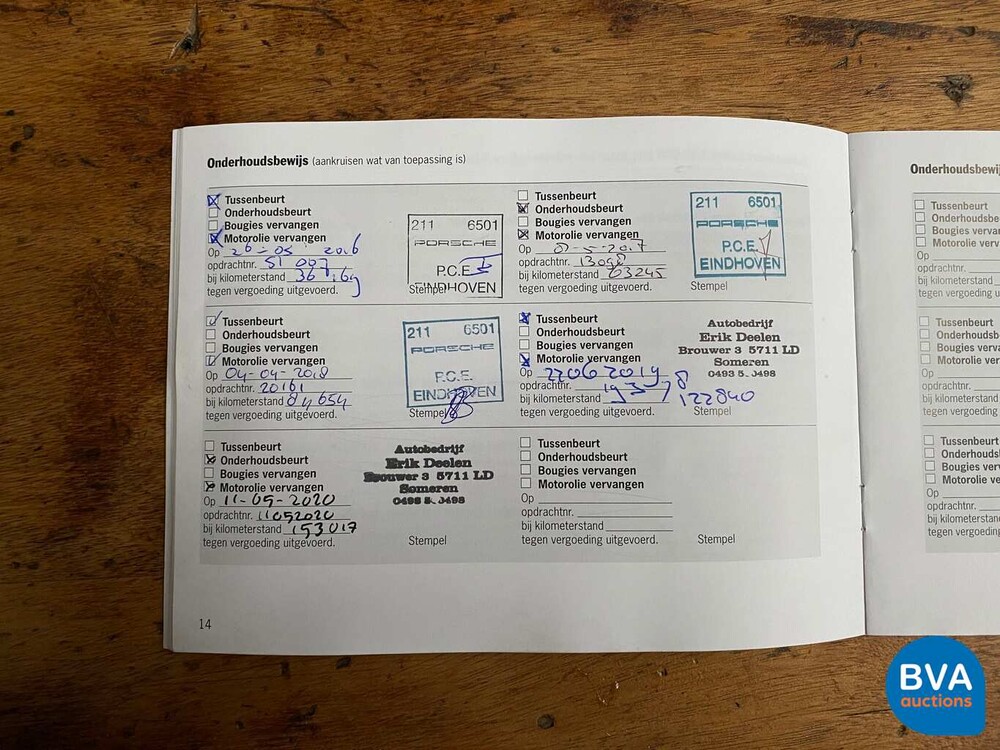 Onderhoudsbewijs (aankruisen wat van toepassing is)
Tussenbeurt
Onderhoudsbeurt
Bougies vervangen
Motorolie vervangen
Op 26-05 2016
opdrachtnr. 51 007
bij kilometerstand
tegen vergoeding uitgevoerd.
211 6501
PORSCHE
P.C.E.
EINDHOVEN
Stempel
Tussenbeurt
Onderhoudsbeurt
Bougies vervangen
Motorolie vervangen
Op
opdrachtnr.
bij kilometerstand 63245
tegen vergoeding uitgevoerd.
211 6501
PORSCHE
P.C.E.
EINDHOVEN
Stempel
Tussenbeurt
Onderhoudsbeurt
Bougies vervangen
Motorolie vervangen
Op 04-04-2018
opdrachtnr. 20161
bij kilometerstand 84654
tegen vergoeding uitgevoerd.
211 6501
PORSCHE
P.C.E.
EINDHOVEN
Stempel
Tussenbeurt
Onderhoudsbeurt
Bougies vervangen
Motorolie vervangen
Op 22062019
opdrachtnr.
bij kilometerstand 122840
tegen vergoeding uitgevoerd.
Autobedrijf
Erik Deelen
Brouwer 3 5711 LD
Someren
Stempel
Tussenbeurt
Onderhoudsbeurt
Bougies vervangen
Motorolie vervangen
Op 11-05-2020
opdrachtnr. 11052020
bij kilometerstand 153017
tegen vergoeding uitgevoerd.
Autobedrijf
Erik Deelen
Brouwer 3 5711 LD
Someren
Stempel
Tussenbeurt
Onderhoudsbeurt
Bougies vervangen
Motorolie vervangen
Op
opdrachtnr.
bij kilometerstand
tegen vergoeding uitgevoerd.
Stempel
14
Onderhoudsbewij
Tussenbeurt
Onderhoudsbe
Bougies verva
Motorolie verv
Op
opdrachtnr.
bij kilometerstand
tegen vergoeding
Tussenbeurt
Onderhoudsb
Bougies verva
Motorolie ver
Op
opdrachtnr.
bij kilometerstand
tegen vergoeding
Tussenbeurt
Onderhouds
Bougies verv
Motorolie ve
Op
opdrachtnr.
bij kilometerstan
tegen vergoeding
BVA
auctions